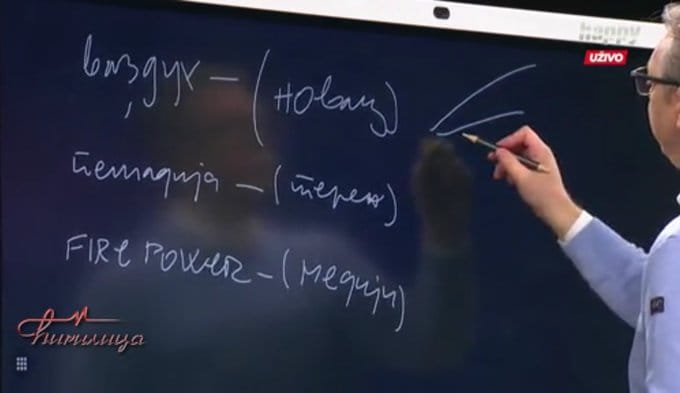 happy
UŽIVO
ваздух – (новац)
пешадија – (терен)
FIRE POWER – (медији)
Ћирилица